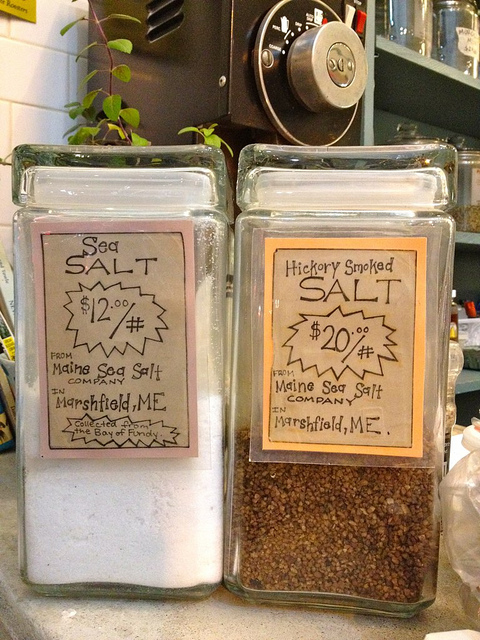 Sea
SALT
$12.00/#
FROM
Maine Sea Salt
COMPANY
IN
Marshfield, ME
Collected from
the Bay of Fundy.
Hickory Smoked
SALT
$20.00/#
FROM
Maine Sea Salt
COMPANY
IN
Marshfield, ME.